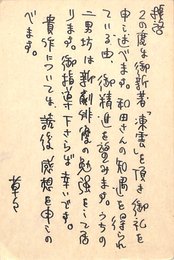 拝啓
この度は御新著「凍雲」を頂き御礼を
申し述べます。和田さんの知遇を得られ
ている由、御精進を望みます。うちの
二男坊は新劇俳優の勉強をして居
ります。御指導下さらば幸いです。
貴作については、読後感想を申しの
べます。
草々